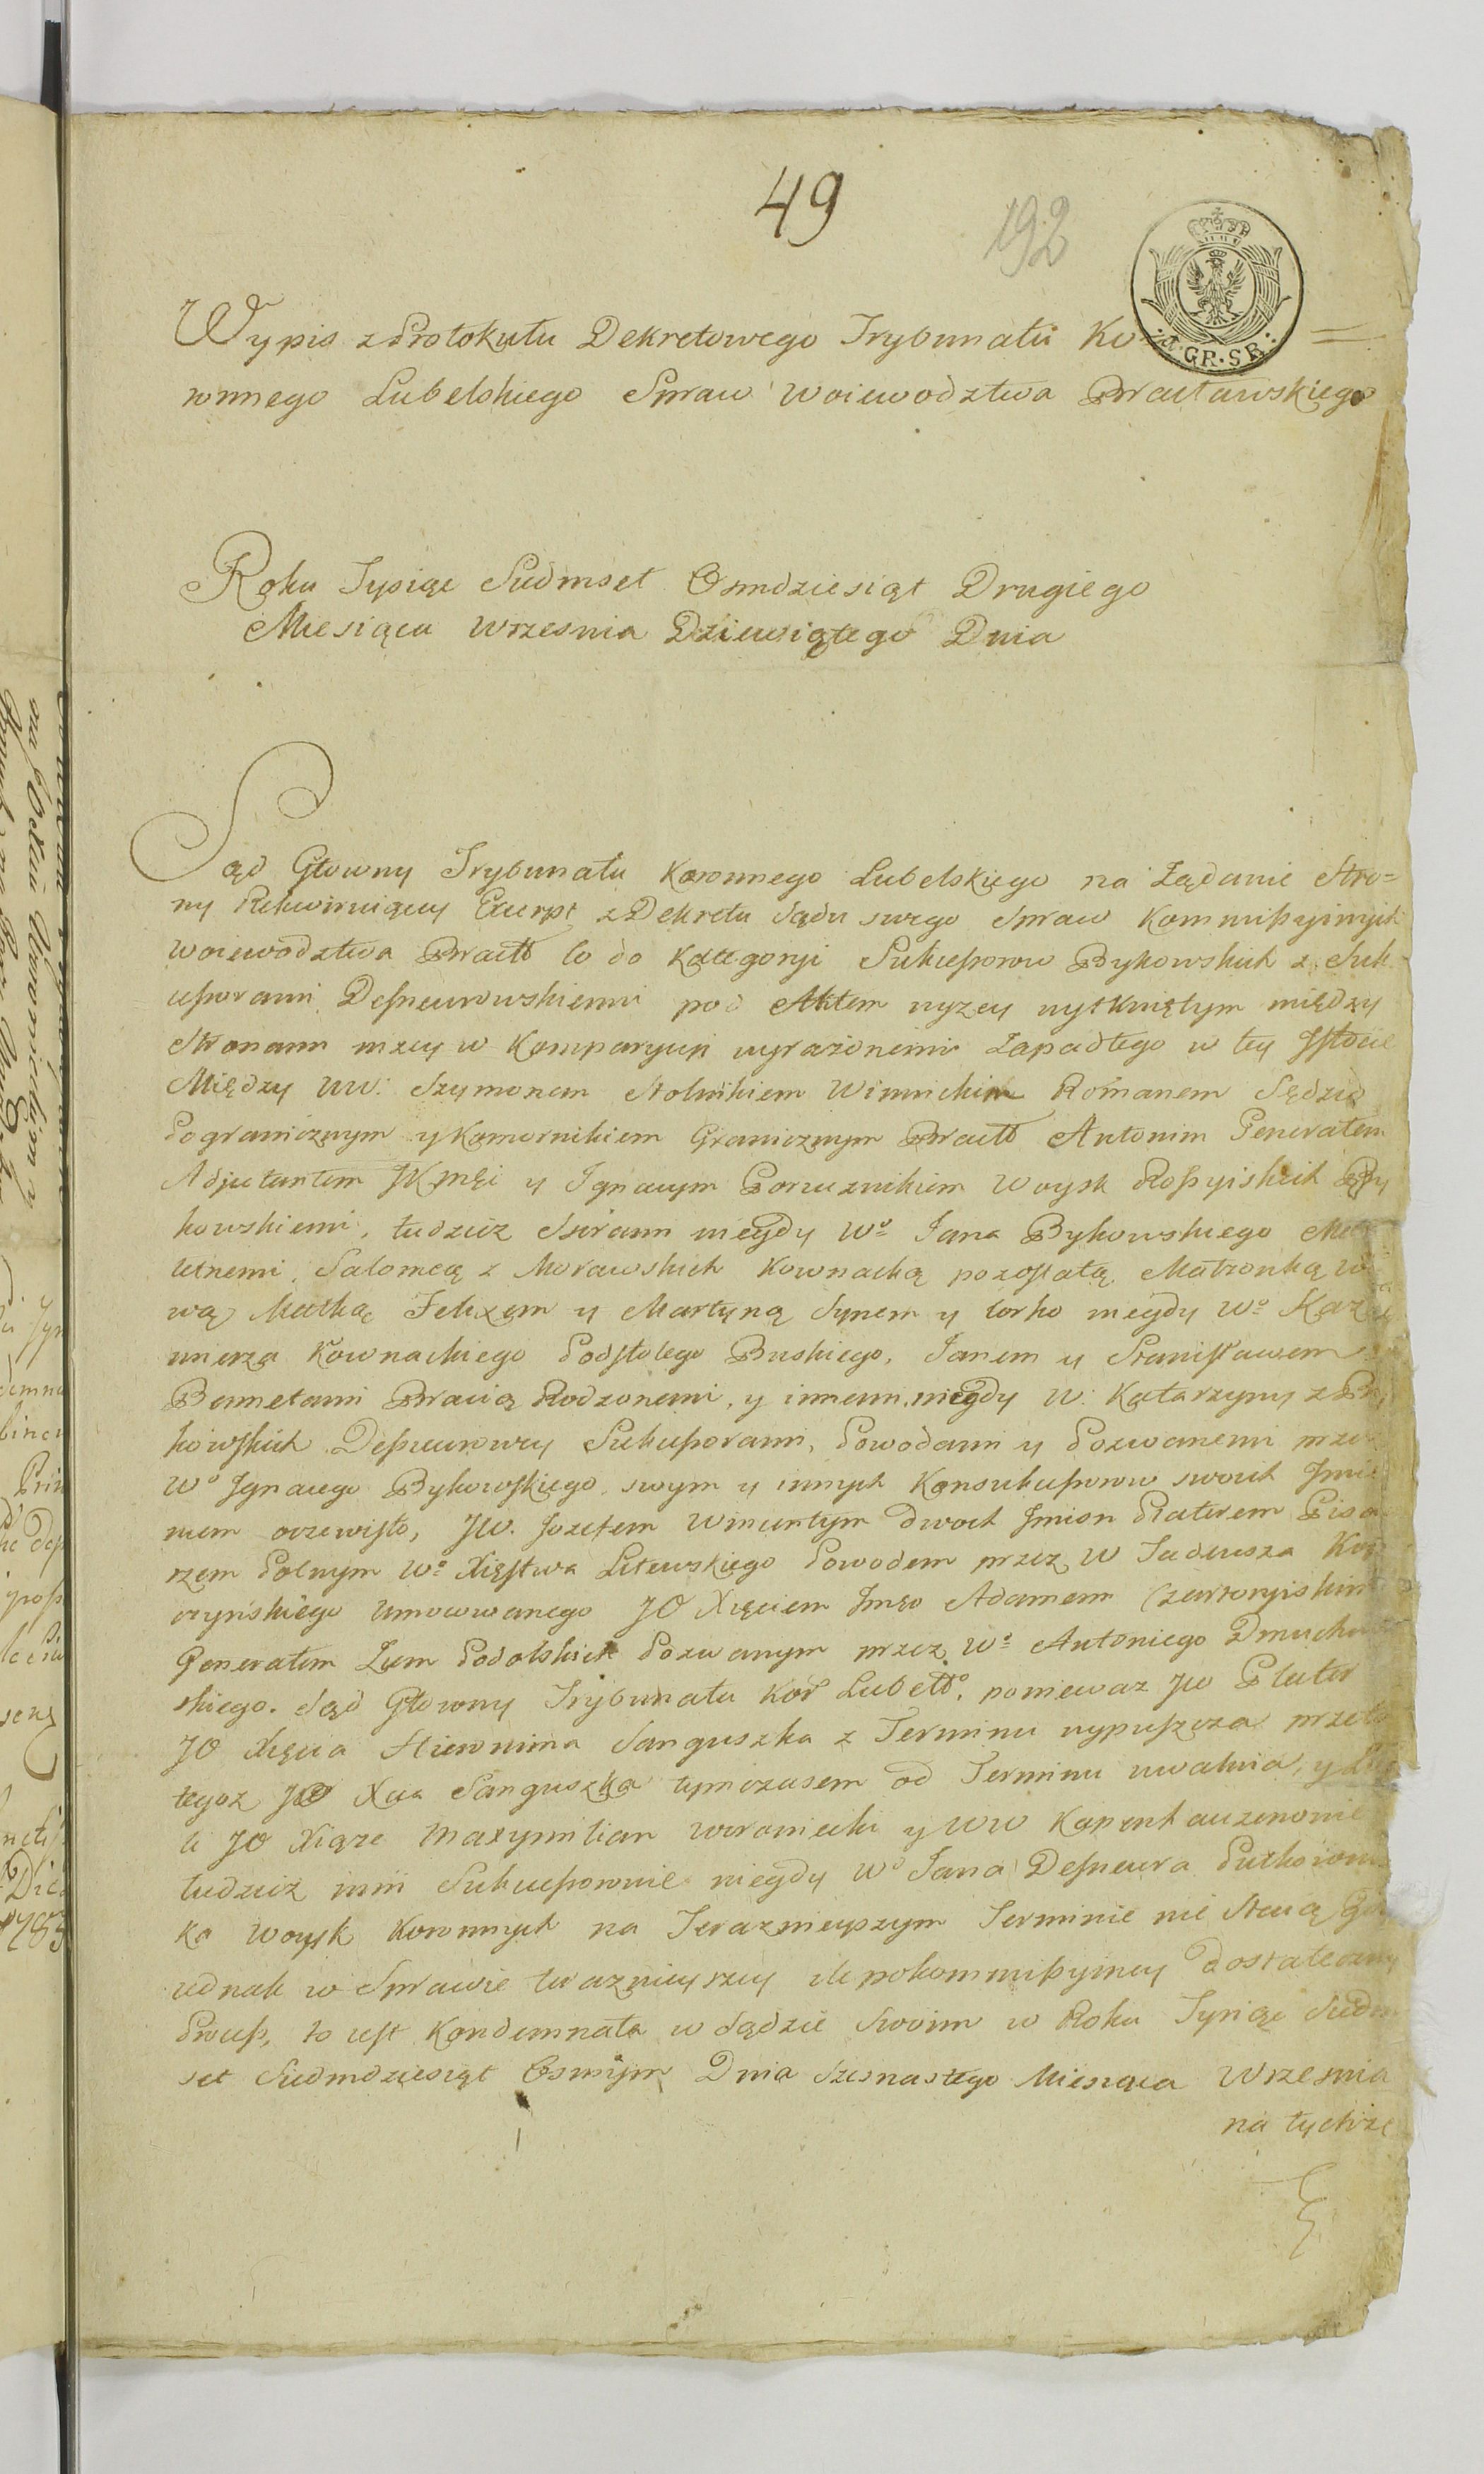 49
192
GR·SR·
Wypis z Protokułu Dekretowego Trybunału Ko=
ronnego Lubelskiego Spraw Woiewodztwa Bracławskiego
Roku Tysiąc Siedmset Osmdziesiąt Drugiego
Miesiąca Wrzesnia Dziewiątego Dnia
Sąd Głowny Trybunału Koronnego Lubelskiego na Ządanie Stro=
ny Rekwiruiącey Excerpt z Dekretu Sądu swego Spraw Kommissyinych
Woiewodztwa Bracłł co do Kategoryi Sukcessorow Bykowskich z Suk
cessorami Despeurowskiemi pod Aktem wyzey wytkniętym między
Stronami nizey w Komparycyi wyrażonemi Zapadłego w tey Jstocie
Między WW. Szymonem Stolnikiem Winnickim Romanem Sędzią
Pogranicznym y Komornikiem Granicznym Bracłł Antonim Generałem
Adjutantem JKMci y Jgnacym Porucznikiem Woysk Rossyiskich By
kowskiemi, tudziez Synami niegdy Wo Jana Bykowskiego Mało
letnemi, Salomeą z Morawskich Kownacką pozostałą Małżonką
wą Matką Felixem y Martyną Synem y Corko niegdy Wo Kaz
imierza Kownackiego Podstolego Buskiego, Janem y Stanisławem
Bennetami Bracią Rodzonemi, y innemi niegdy W. Katarzyny z By
kowskich Despeurowey Sukcessorami, Powodami y Pozwanemi przez
Wo Jgnacego Bykowskiego swym y innych Konsukcessorow swoich Jmie
niem oczewisto, JW. Jozefem Wincentym dwoch Jmion Platerem Pisa
rzem Polnym Wo Xięstwa Litewskiego Powodem przez W Tadeusza
czyńskiego umocowanego JO Xięciem Jmęo Adamem Czartoryiskim
Generałem Ziem Podolskich Pozwanym przez Wo Antoniego
skiego. Sąd Głowny Trybunału Kor Lubełło, poniewaz JW Plater
JO Xięcia Hieronima Sanguszka z Terminu wypuszcza przeto
tegoz JO Xcia Sanguszka tymczasem od Terminu uwalnia, y
li JO Xiąze Maxymilian Woroniecki y WW
tudziez inni Sukcessorowie niegdy Wo Jana Despeura Pułkowni
ka Woysk Koronnych na Teraznieyszym Terminie nie Staią
iednak w Sprawie teraznieyszey ile pokommissyiney dostateczny
Process, to iest Kondemnata w Sądzie Swoim w Roku Tysiąc Siedm
set Siedmdziesiąt Osmym Dnia Szesnastego Miesiąca Wrzesnia
na tychze